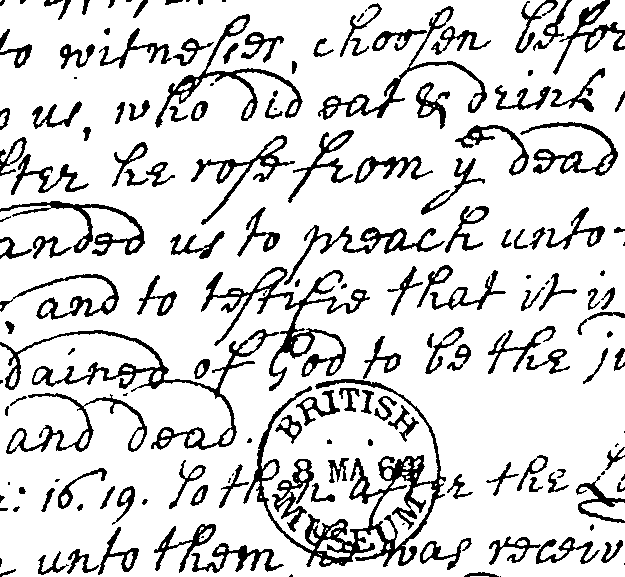 to witnesses, choosen befor
us, who did eat & drink
fter he rose from yᵉ dead
anded us to preach unto
and to testifie that it is
dained of God to be the ju
and dead.
r: 16. 19. So then after the Lo
unto them he was receiv
BRITISH
8 MA 69
MUSEUM